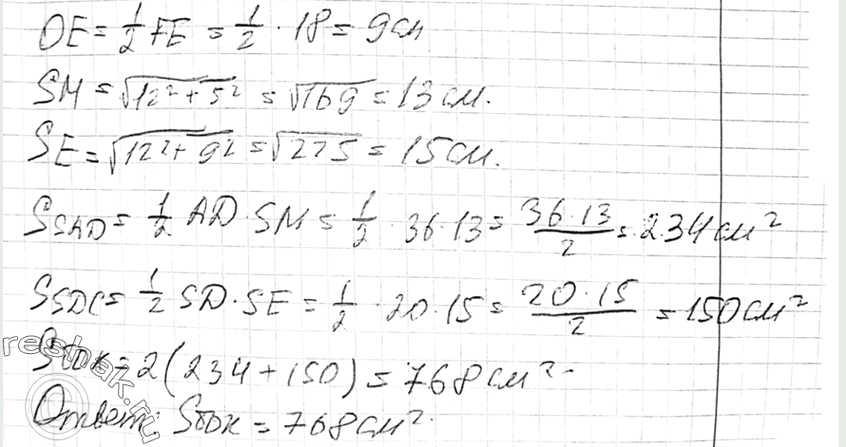 OE = 1/2 FE = 1/2 · 18 = 9 см
SM = √(12² + 5²) = √169 = 13 см.
SE = √(12² + 9²) = √225 = 15 см.
S_SAD = 1/2 AD · SM = 1/2 · 36 · 13 = (36 · 13)/2 = 234 см²
S_SDC = 1/2 SD · SE = 1/2 · 20 · 15 = (20 · 15)/2 = 150 см²
Sбок = 2(234 + 150) = 768 см².
Ответ: Sбок = 768 см².
reshak.ru